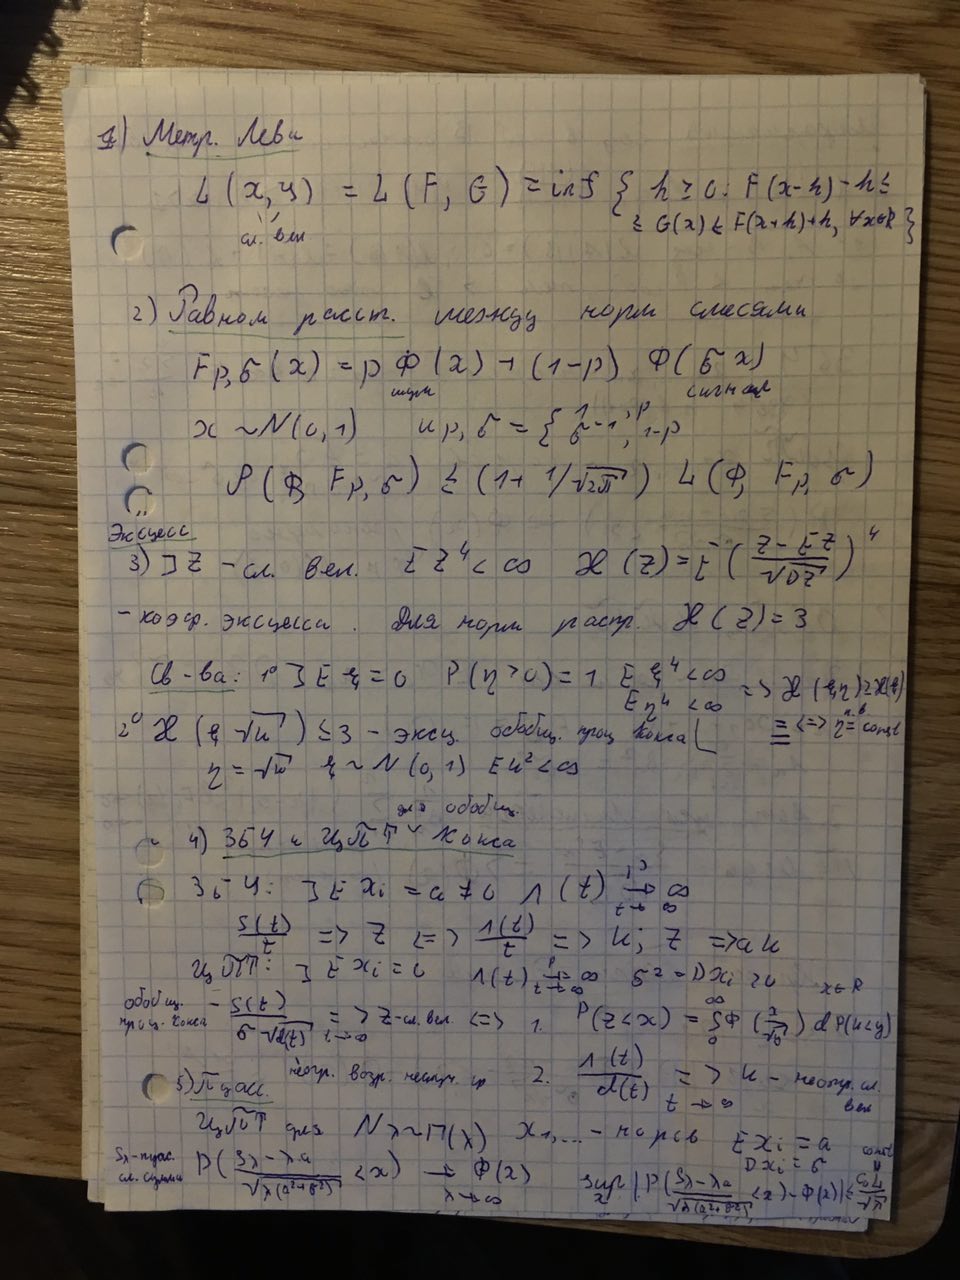 1) Метр. Леви
L(x, y) = L(F, G) = inf { h ≥ 0: F(x-h) - h ≤
сл. вел
≤ G(x) ≤ F(x+h)+h, ∀x∈R }
2) Равном расст. между норм смесями
Fp,σ(x) = p Ф(x) + (1-p) Ф(σx)
шум сигнал
x ~ N(0,1) up,σ = { 1, p
σ⁻¹, 1-p
ρ(Ф, Fp,σ) ≤ (1+1/√2π) L(Ф, Fp,σ)
Эксцесс
3) ] Z - сл. вел. EZ⁴ < ∞ ℋ(Z) = E((Z - EZ)/√DZ)⁴
- коэф. эксцесса. Для норм распр. ℋ(Z) = 3
Св-ва: 1° ] Eξ = 0 P(η > 0) = 1 Eξ⁴ < ∞
Eη⁴ < ∞ => ℋ(ξη) ≥ ℋ(ξ)
2° ℋ(ξ√u) ≤ 3 - эксц обобщ. проц Кокса
= <=> η п.в = const
η = √u ξ ~ N(0,1) Eu² < ∞
для обобщ.
4) ЗБЧ и ЦПТ Кокса
ЗБЧ: ] EXi = a ≠ 0 Λ(t) →ᴾ ∞
t → ∞
S(t)/t => Z <=> Λ(t)/t => U; Z => aU
ЦПТ: ] EXi = 0 Λ(t) →ᴾ ∞ t→∞ σ² = DXi > 0
x∈R
обобщ. проц. Кокса - S(t)/(σ√d(t)) => t→∞ Z - сл. вел. <=> 1. P(Z<x) = ∫₀^∞ Ф(x/√y) dP(u<y)
неогр. возр. 2. Λ(t)/d(t) => t→∞ U - неотр. сл. вел
5) Пуасс.
ЦПТ для Nλ ~ П(λ) X1,... - норсв EXi = a
DXi = σ
Sλ - пуас. сл. сумма P((Sλ - λa)/√λ(a²+σ²) < x) → Ф(x)
λ→∞
sup x |P((Sλ - λa)/√λ(a²+σ²) < x) - Ф(x)| ≤
const